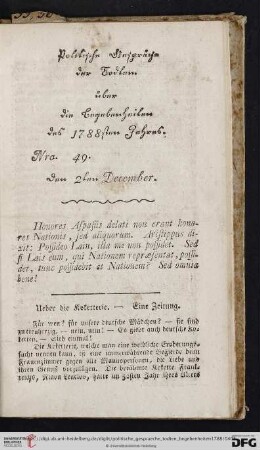 Politische Gespräche
der Todten
über
die Begebenheiten
des 1788sten Jahres.
Nro. 49.
den 2ten December.
Honores Aspasiis delati non erant hono-
res Nationis, sed aliquorum. Aristippus di-
xit: Possideo Lain, illa me non possidet. Sed
si Lais eum, qui Nationem repræsentat, possi-
det, tunc possidebit et Nationem? Sed omnia
bene!
Ueber die Koketterie. — Eine Zeitung.
Für wen? für unsere deutsche Mädchen? — sie sind
— nein, nein! — Es giebt auch deutsche Ko-
ketten. — Also einmal!
Die Koketterie, welche man eine weibliche Eroberungs-
sucht nennen kann, ist eine immerwährende Begierde dem
Frauenzimmer gegen alle Mannspersonen, die ihr Lob und
ihren Genuß verfolgen. Die berühmte Kokette Frank-
reichs, Ninon Lenclos, hatte im 80sten Jahr ihres Alters